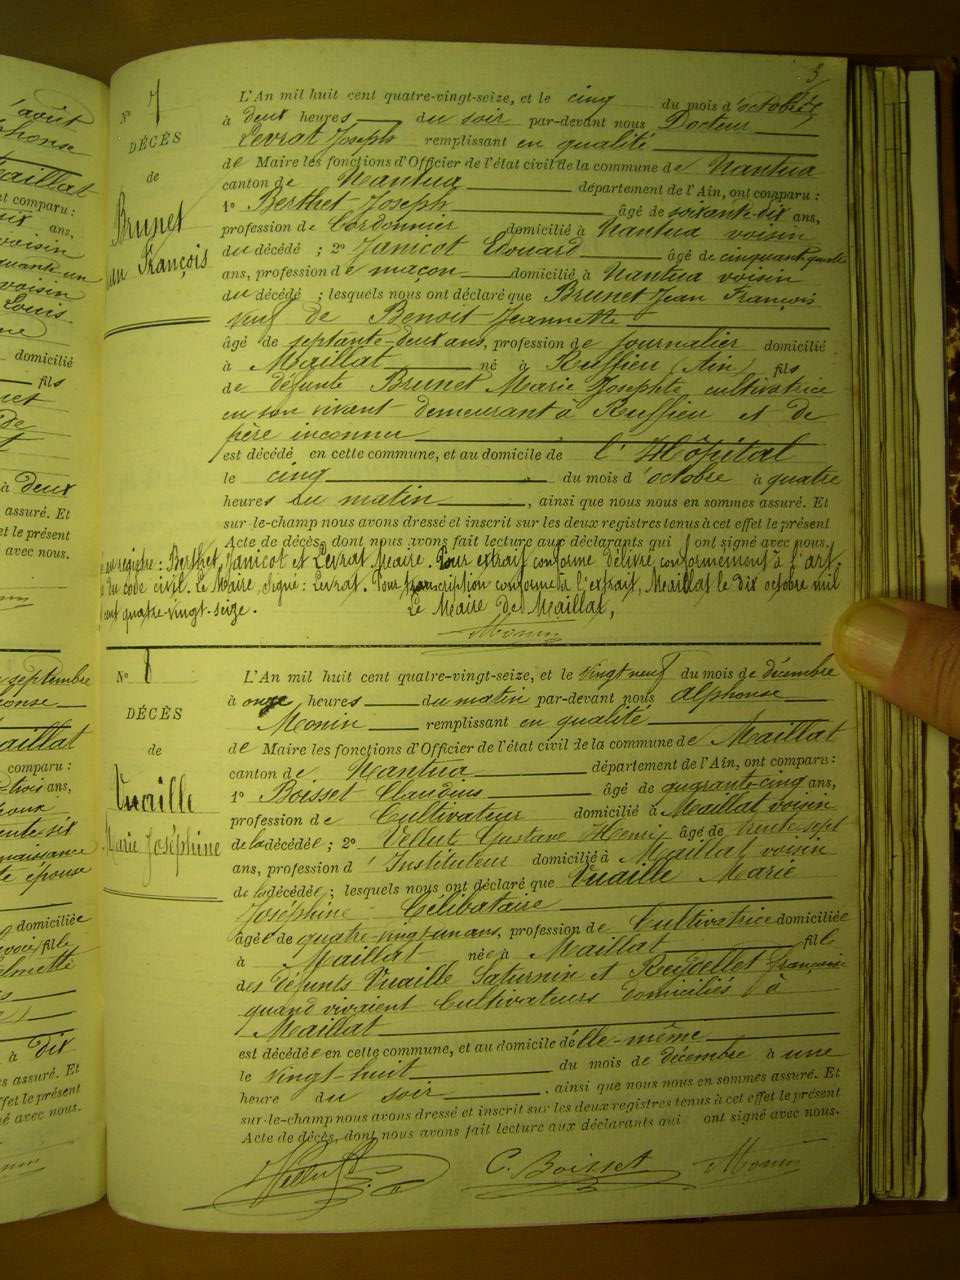 3
N° 7
DÉCÈS
de
Brunet
François
L'An mil huit cent quatre-vingt-seize, et le cinq du mois d'octobre
à deux heures du soir par-devant nous Docteur
Levrat Joseph remplissant en qualité
de Maire les fonctions d'Officier de l'état civil de la commune de Nantua
canton de Nantua département de l'Ain, ont comparu :
1° Berthet Joseph âgé de soixante-dix ans,
profession de Cordonnier domicilié à Nantua voisin
du décédé ; 2° Janicot Edouard âgé de cinquante
ans, profession de maçon domicilié à Nantua voisin
du décédé ; lesquels nous ont déclaré que Brunet Jean François
veuf de Benoit Jeannette
âgé de septante-deux ans, profession de journalier domicilié
à Maillat né à Ruffieu (Ain) fils
de défunte Brunet Marie Josephte cultivatrice
en son vivant demeurant à Ruffieu et de
père inconnu
est décédé en cette commune, et au domicile de l'Hôpital
le cinq du mois d'octobre à quatre
heures du matin, ainsi que nous nous en sommes assuré. Et
sur-le-champ nous avons dressé et inscrit sur les deux registres tenus à cet effet le présent
Acte de décès, dont nous avons fait lecture aux déclarants qui ont signé avec nous.
registre : Berthet, Janicot et Levrat Maire. Pour extrait conforme délivré conformément à l'art.
du code civil. Le Maire, signé : Levrat. Pour transcription conforme à l'extrait, Maillat le dix octobre mil
cent quatre-vingt-seize. Le Maire de Maillat,
Monin
N° 8
DÉCÈS
de
Vuaille
Marie Joséphine
L'An mil huit cent quatre-vingt-seize, et le vingt neuf du mois de décembre
à onze heures du matin par-devant nous Alphonse
Monin remplissant en qualité
de Maire les fonctions d'Officier de l'état civil de la commune de Maillat
canton de Nantua département de l'Ain, ont comparu :
1° Boisset Claudius âgé de quarante-cinq ans,
profession de Cultivateur domicilié à Maillat voisin
de la décédée ; 2° Vellut Gustave Henri âgé de trente-sept
ans, profession d'Instituteur domicilié à Maillat voisin
de la décédée ; lesquels nous ont déclaré que Vuaille Marie
Joséphine Célibataire
âgée de quatre-vingt-un ans, profession de Cultivatrice domiciliée
à Maillat née à Maillat fille
des défunts Vuaille Saturnin et Beydellet Françoise
quand vivaient Cultivateurs domiciliés à
Maillat
est décédée en cette commune, et au domicile d'elle-même
le vingt-huit du mois de décembre à une
heure du soir, ainsi que nous nous en sommes assuré. Et
sur-le-champ nous avons dressé et inscrit sur les deux registres tenus à cet effet le présent
Acte de décès, dont nous avons fait lecture aux déclarants qui ont signé avec nous.
Vellut C. Boisset Monin